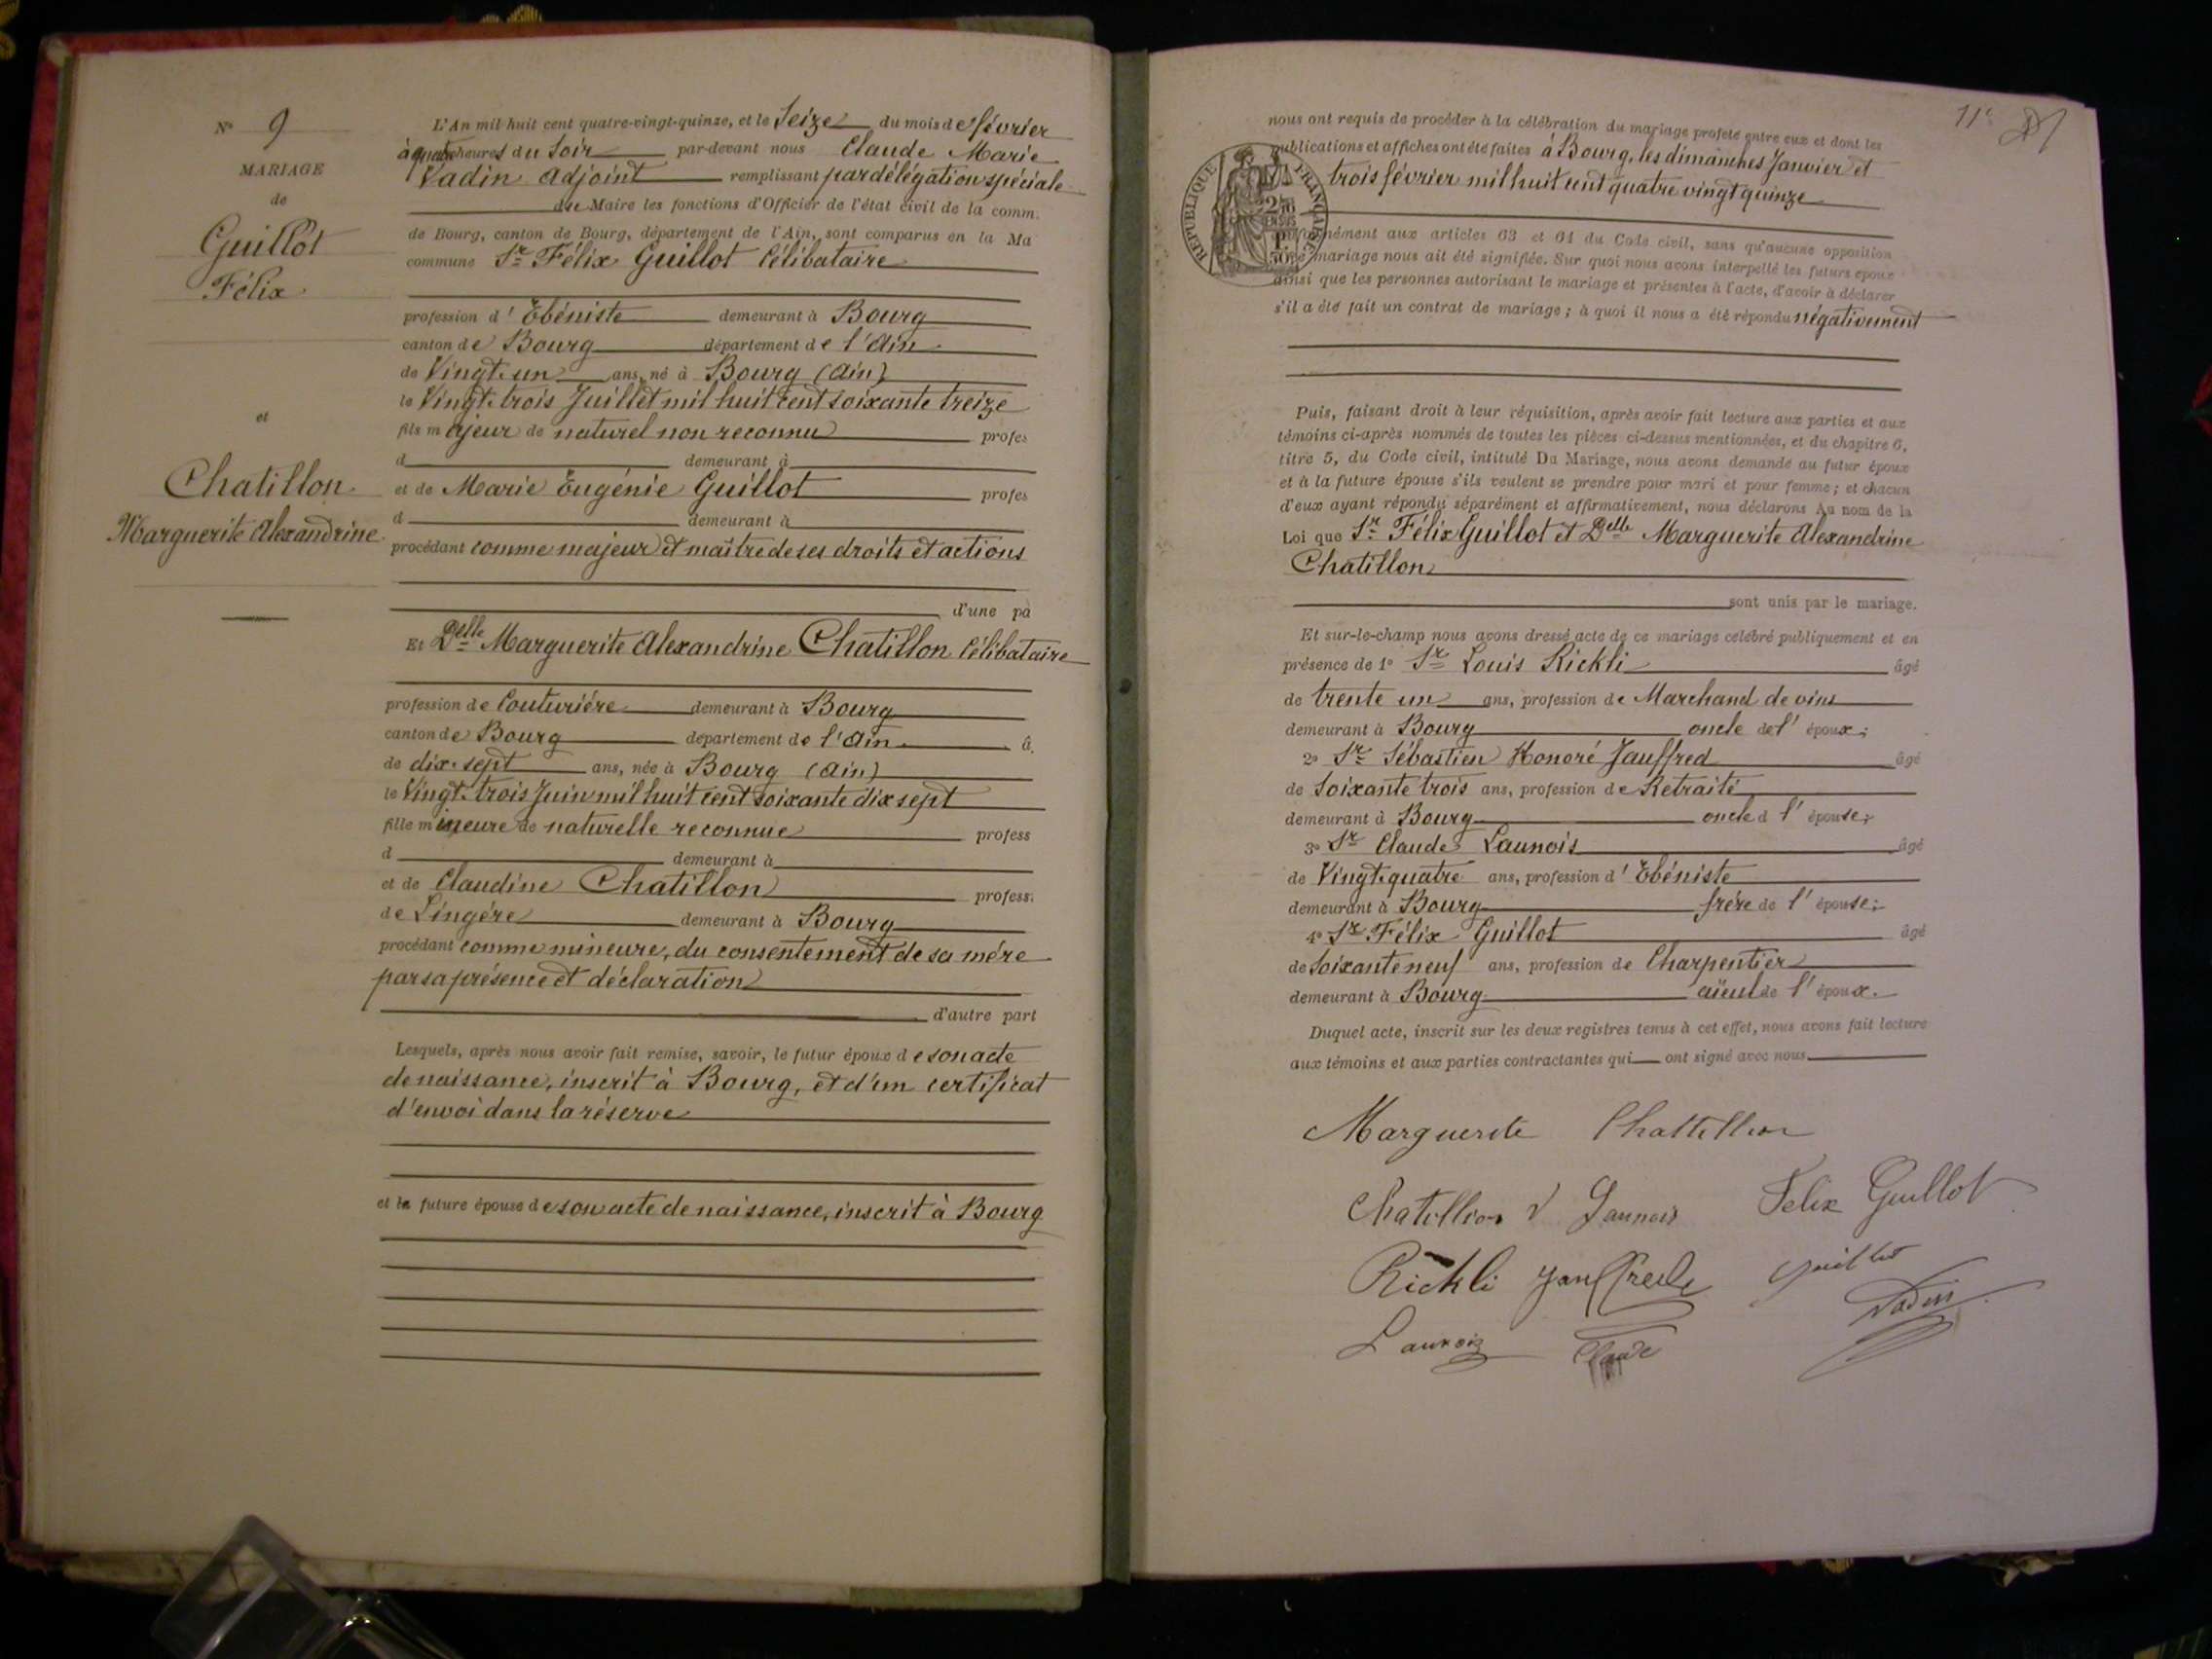 N° 9
MARIAGE
de
Guillot
Félix
et
Chatillon
Marguerite Alexandrine
L'An mil huit cent quatre-vingt-quinze, et le Seize du mois de février
à quatre heures du soir par-devant nous Claude Marie
Vadin Adjoint remplissant par délégation spéciale
du Maire les fonctions d'Officier de l'état civil de la comm.
de Bourg, canton de Bourg, département de l'Ain, sont comparus en la Ma
commune Sr Félix Guillot Célibataire
profession d'Ebéniste demeurant à Bourg
canton de Bourg département de l'Ain
de Vingt-un ans, né à Bourg (Ain)
le Vingt-trois Juillet mil huit cent soixante treize
fils majeur de naturel non reconnu profes
d demeurant à
et de Marie Eugénie Guillot profes
d demeurant à
procédant comme majeur et maître de ses droits et actions
d'une pa
Et Delle Marguerite Alexandrine Chatillon Célibataire
profession de Couturière demeurant à Bourg
canton de Bourg département de l'Ain â.
de dix-sept ans, née à Bourg (Ain)
le Vingt-trois Juin mil huit cent soixante dix sept
fille mineure de naturelle reconnue profess
d demeurant à
et de Claudine Chatillon profess.
de Lingére demeurant à Bourg
procédant comme mineure, du consentement de sa mére
par sa présence et déclaration
d'autre part
Lesquels, après nous avoir fait remise, savoir, le futur époux de son acte
de naissance, inscrit à Bourg, et d'un certificat
d'envoi dans la réserve
et la future épouse de son acte de naissance, inscrit à Bourg
11e
nous ont requis de procéder à la célébration du mariage projeté entre eux et dont les
publications et affiches ont été faites à Bourg, les dimanches Janvier et
trois février mil huit cent quatre vingt quinze
RÉPUBLIQUE FRANÇAISE
conformément aux articles 63 et 64 du Code civil, sans qu'aucune opposition
mariage nous ait été signifiée. Sur quoi nous avons interpellé les futurs époux
ainsi que les personnes autorisant le mariage et présentes à l'acte, d'avoir à déclarer
s'il a été fait un contrat de mariage ; à quoi il nous a été répondu négativement
Puis, faisant droit à leur réquisition, après avoir fait lecture aux parties et aux
témoins ci-après nommés de toutes les pièces ci-dessus mentionnées, et du chapitre 6,
titre 5, du Code civil, intitulé Du Mariage, nous avons demandé au futur époux
et à la future épouse s'ils veulent se prendre pour mari et pour femme ; et chacun
d'eux ayant répondu séparément et affirmativement, nous déclarons Au nom de la
Loi que Sr Félix Guillot et Delle Marguerite Alexandrine
Chatillon
sont unis par le mariage.
Et sur-le-champ nous avons dressé acte de ce mariage célébré publiquement et en
présence de 1° Sr Louis Rickli âgé
de trente un ans, profession de Marchand de vins
demeurant à Bourg oncle de l'époux ;
2° Sr Sébastien Honoré Jauffred âgé
de Soixante trois ans, profession de Retraité
demeurant à Bourg oncle d l'épouse ;
3° Sr Claude Launois âgé
de Vingt-quatre ans, profession d'Ebéniste
demeurant à Bourg frére de l'épouse ;
4° Sr Félix Guillot âgé
de Soixante neuf ans, profession de Charpentier
demeurant à Bourg aïeul de l'époux.
Duquel acte, inscrit sur les deux registres tenus à cet effet, nous avons fait lecture
aux témoins et aux parties contractantes qui ont signé avec nous
Marguerite Chattillon
Chatillion V Launois Felix Guillot
Rickli Jauffred Guillot
Vadin
Launois Claude